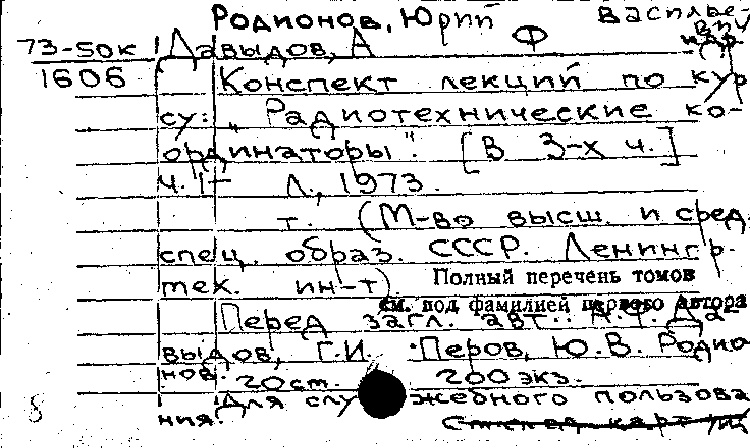 Родионов, Юрий Василье-
вич
73-50к Давыдов, А Ф
1606 Конспект лекций по кур
су: „Радиотехнические ко-
ординаторы". [В 3-х ч.]
Ч. 1- Л., 1973.
т. (М-во высш. и сред.
спец. образ. СССР. Ленингр.
тех. ин-т).
Полный перечень томов
см. под фамилией первого автора
Перед загл. авт.: А.Ф. Да-
выдов, Г.И. Перов, Ю.В. Родио
нов. 20 см. 200 экз.
8 Для служебного пользова
ния.